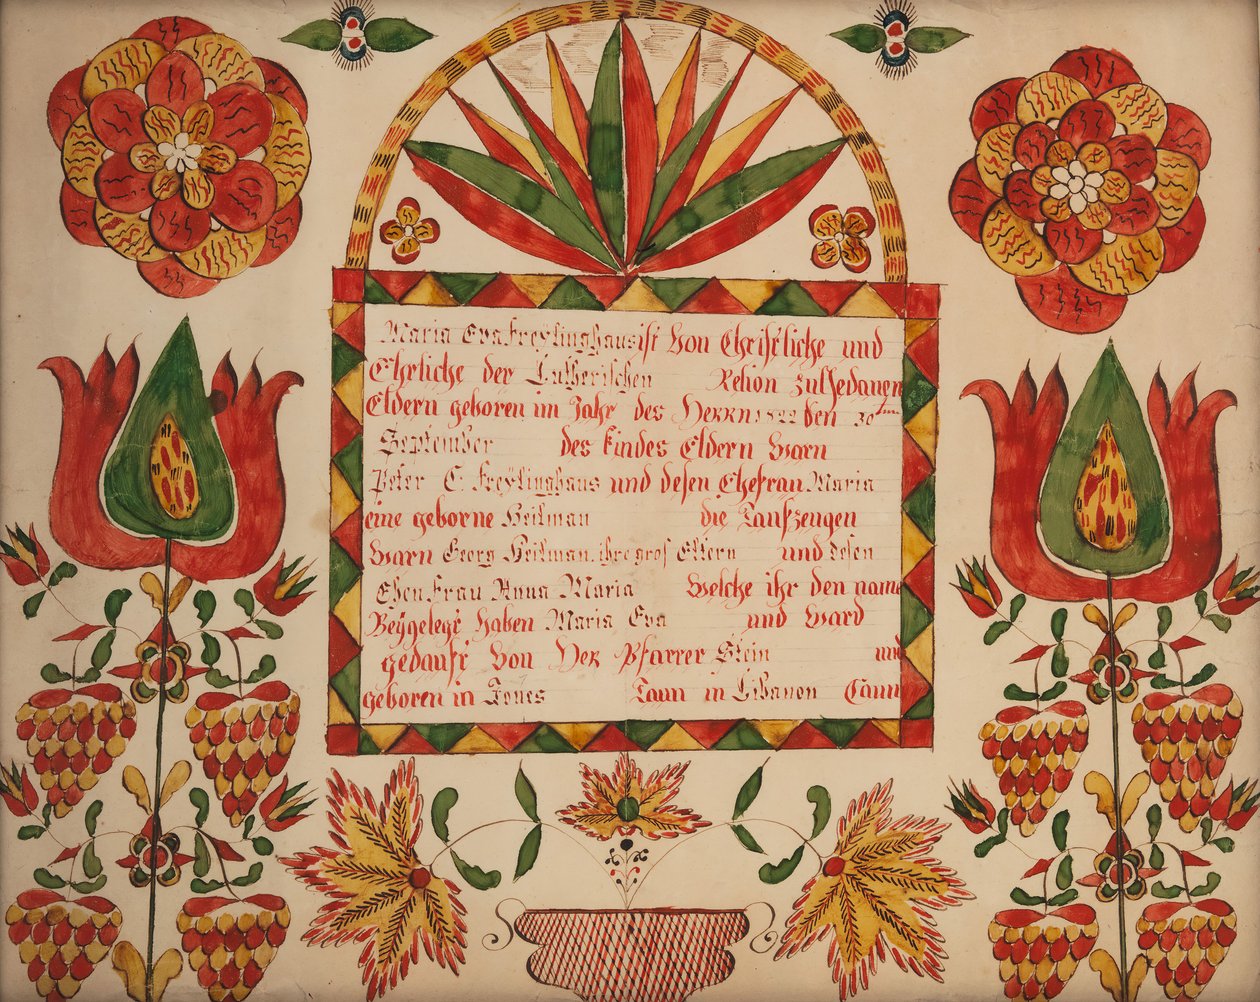 Maria Eva Freÿlinghaus ist Von Christliche und
Ehrliche der Lutherischen Relion zulJedanen
Eldern geboren im Jahr des Herrn 1822 den 30ten
September des kindes Eldern warn
Peter C. Freÿlinghaus und desen Ehefrau Maria
eine geborne Heilman die Taufzeugen
Warn Georg Heilman, ihre gros Eltern und desen
Ehen Frau Anna Maria Welche ihr den name
Beÿgelegt haben Maria Eva und ward
gedauft Von Der Pfarrer Stein und
geboren in Jones Taun in Libanon Caun